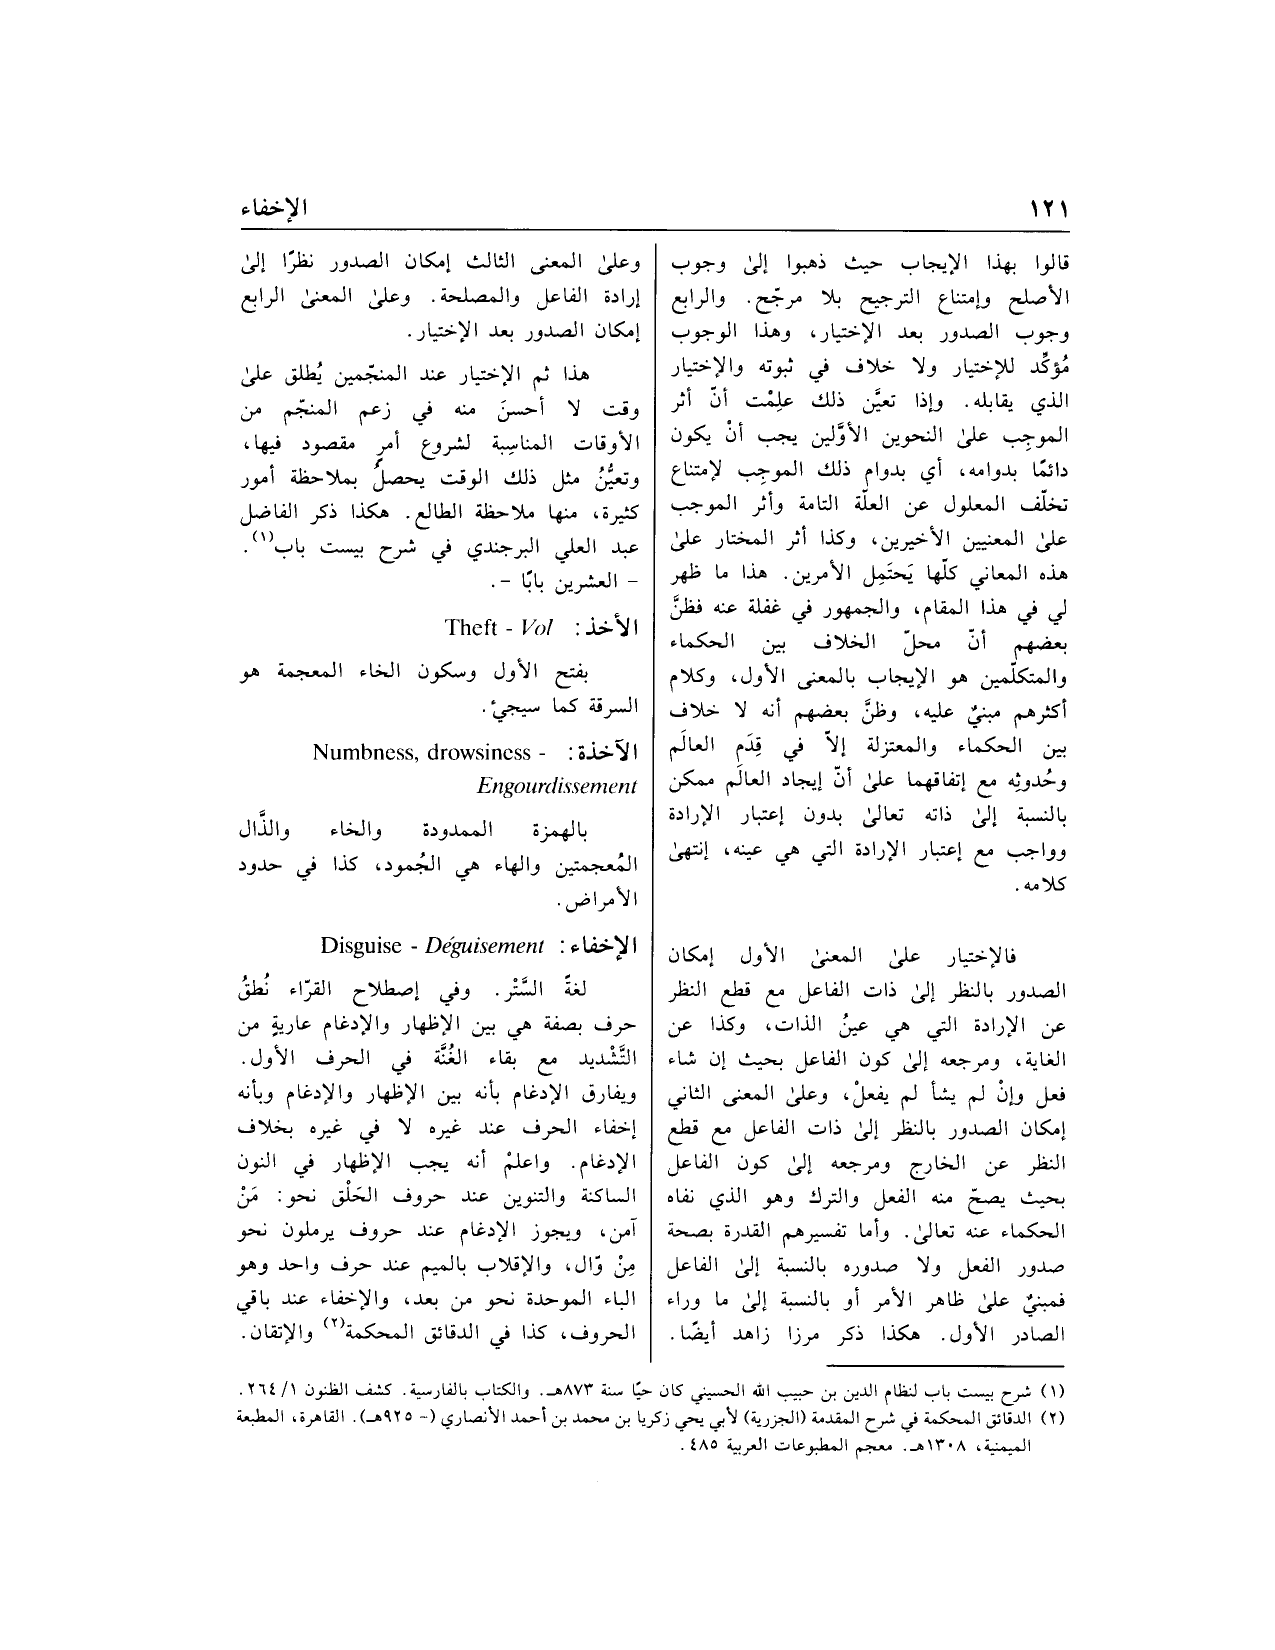 ١٢١
الإخفاء
قالوا بهذا الإيجاب حيث ذهبوا إلىٰ وجوب
الأصلح وإمتناع الترجيح بلا مرجّح. والرابع
وجوب الصدور بعد الإختيار، وهذا الوجوب
مُؤكِّد للإختيار ولا خلاف في ثبوته والإختيار
الذي يقابله. وإذا تعيَّن ذلك علِمْت أنّ أثر
الموجِب علىٰ النحوين الأوَّلين يجب أنْ يكون
دائمًا بدوامه، أي بدوام ذلك الموجِب لإمتناع
تخلّف المعلول عن العلّة التامة وأثر الموجب
علىٰ المعنيين الأخيرين، وكذا أثر المختار علىٰ
هذه المعاني كلّها يَحتَمِل الأمرين. هذا ما ظهر
لي في هذا المقام، والجمهور في غفلة عنه فظنَّ
بعضهم أنّ محلّ الخلاف بين الحكماء
والمتكلّمين هو الإيجاب بالمعنى الأول، وكلام
أكثرهم مبنيٌ عليه، وظنَّ بعضهم أنه لا خلاف
بين الحكماء والمعتزلة إلاّ في قِدَم العالَم
وحُدوثِه مع إتفاقهما علىٰ أنّ إيجاد العالَم ممكن
بالنسبة إلىٰ ذاته تعالىٰ بدون إعتبار الإرادة
وواجب مع إعتبار الإرادة التي هي عينه، إنتهىٰ
كلامه.
فالإختيار علىٰ المعنىٰ الأول إمكان
الصدور بالنظر إلىٰ ذات الفاعل مع قطع النظر
عن الإرادة التي هي عينُ الذات، وكذا عن
الغاية، ومرجعه إلىٰ كون الفاعل بحيث إن شاء
فعل وإنْ لم يشأ لم يفعلْ، وعلىٰ المعنى الثاني
إمكان الصدور بالنظر إلىٰ ذات الفاعل مع قطع
النظر عن الخارج ومرجعه إلىٰ كون الفاعل
بحيث يصحّ منه الفعل والترك وهو الذي نفاه
الحكماء عنه تعالىٰ. وأما تفسيرهم القدرة بصحة
صدور الفعل ولا صدوره بالنسبة إلىٰ الفاعل
فمبنيٌ علىٰ ظاهر الأمر أو بالنسبة إلىٰ ما وراء
الصادر الأول. هكذا ذكر مرزا زاهد أيضًا.
وعلىٰ المعنى الثالث إمكان الصدور نظرًا إلىٰ
إرادة الفاعل والمصلحة. وعلىٰ المعنىٰ الرابع
إمكان الصدور بعد الإختيار.
هذا ثم الإختيار عند المنجّمين يُطلق علىٰ
وقت لا أحسنَ منه في زعم المنجّم من
الأوقات المناسِبة لشروع أمرٍ مقصود فيها،
وتعيُّنُ مثل ذلك الوقت يحصلُ بملاحظة أمور
كثيرة، منها ملاحظة الطالع. هكذا ذكر الفاضل
عبد العلي البرجندي في شرح بيست باب(١).
- العشرين بابًا -.
الأخذ: Theft - Vol
بفتح الأول وسكون الخاء المعجمة هو
السرقة كما سيجئ.
الآخذة: Numbness, drowsiness -
Engourdissement
بالهمزة الممدودة والخاء والذَّال
المُعجمتين والهاء هي الجُمود، كذا في حدود
الأمراض.
الإخفاء: Disguise - Déguisement
لغةً السَّتْر. وفي إصطلاح القرّاء نُطقُ
حرف بصفة هي بين الإظهار والإدغام عاريةٍ من
التَّشْديد مع بقاء الغُنَّة في الحرف الأول.
ويفارق الإدغام بأنه بين الإظهار والإدغام وبأنه
إخفاء الحرف عند غيره لا في غيره بخلاف
الإدغام. واعلمْ أنه يجب الإظهار في النون
الساكنة والتنوين عند حروف الحَلْق نحو: مَنْ
آمن، ويجوز الإدغام عند حروف يرملون نحو
مِنْ وّال، والإقلاب بالميم عند حرف واحد وهو
الباء الموحدة نحو من بعد، والإخفاء عند باقي
الحروف، كذا في الدقائق المحكمة(٢) والإتقان.
(١) شرح بيست باب لنظام الدين بن حبيب الله الحسيني كان حيًا سنة ٨٧٣هـ. والكتاب بالفارسية. كشف الظنون ١/ ٢٦٤.
(٢) الدقائق المحكمة في شرح المقدمة (الجزرية) لأبي يحي زكريا بن محمد بن أحمد الأنصاري (- ٩٢٥هـ). القاهرة، المطبعة
الميمنية، ١٣٠٨هـ. معجم المطبوعات العربية ٤٨٥.